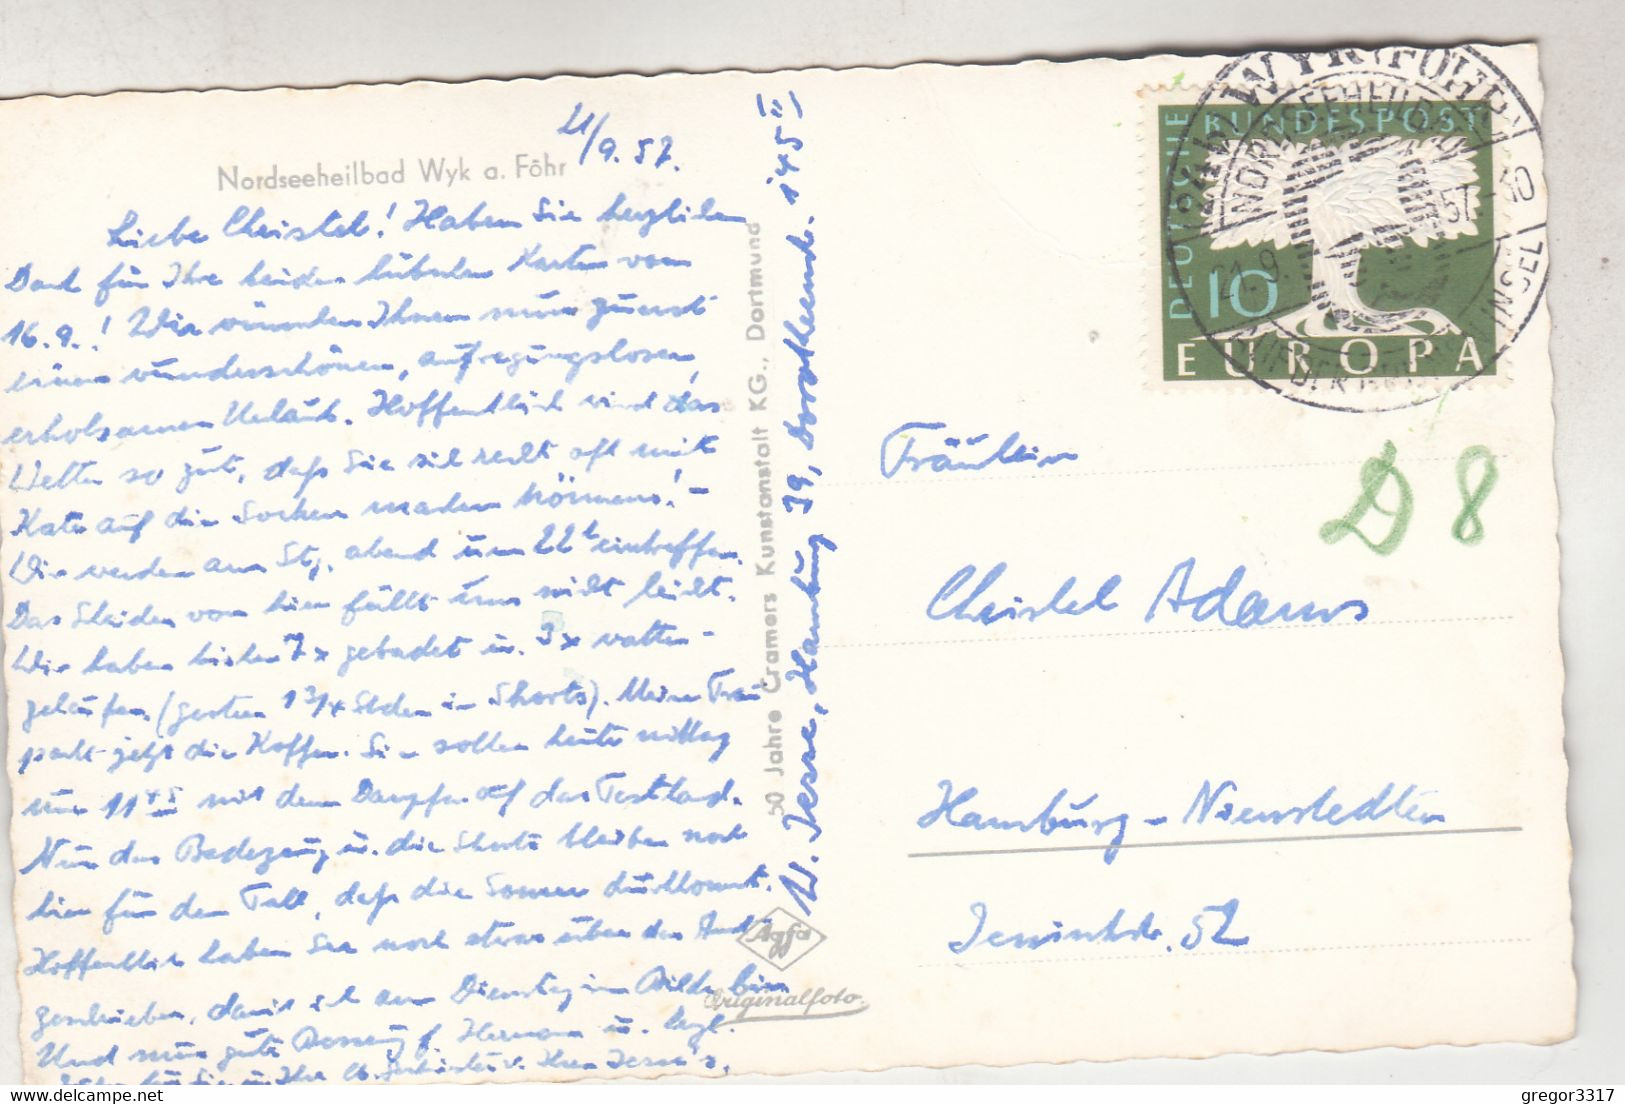 Nordseeheilbad Wyk a. Föhr
21/9.57.
Liebe Christel! Haben Sie herzlichen
Dank für Ihre beiden hübschen Karten vom
16.9.! Wir wünschen Ihnen nun zuerst
einen wunderschönen, aufregungslosen,
erholsamen Urlaub. Hoffentlich wird das
Wetter so gut, daß Sie sich recht oft mit
Kate auf die Socken machen können! -
Wir werden am Stg. abend um 22 h eintreffen.
Das Scheiden von hier fällt uns nicht leicht.
Wir haben bisher 7x gebadet u. 3x watten-
gelaufen (gestern 1 3/4 Stden in Shorts). Meine Frau
packt jetzt die Koffer. Sie sollen heute mittag
um 11 45 mit dem Dampfer auf das Festland.
Nur das Badezeug u. die Shorts bleiben noch
hier für den Fall, daß die Sonne durchkommt.
Hoffentlich haben Sie noch etwas über das
geschrieben, damit ich am Dienstag im Bilde bin
Und nun gute Besserung f. Hermann u. herzl.
Ihre Jesse's.
W. Jesse, Hamburg 39, Dorotheenstr. 145 II
50 Jahre Cramers Kunstanstalt KG., Dortmund
Agfa
Originalfoto
DEUTSCHE BUNDESPOST
10
EUROPA
WYK (FÖHR)
NORDSEEHEILBAD
21.9.57.-10
AUF DER INSEL
D 8
Fräulein
Christel Adams
Hamburg-Nienstedten
52
gregor3317